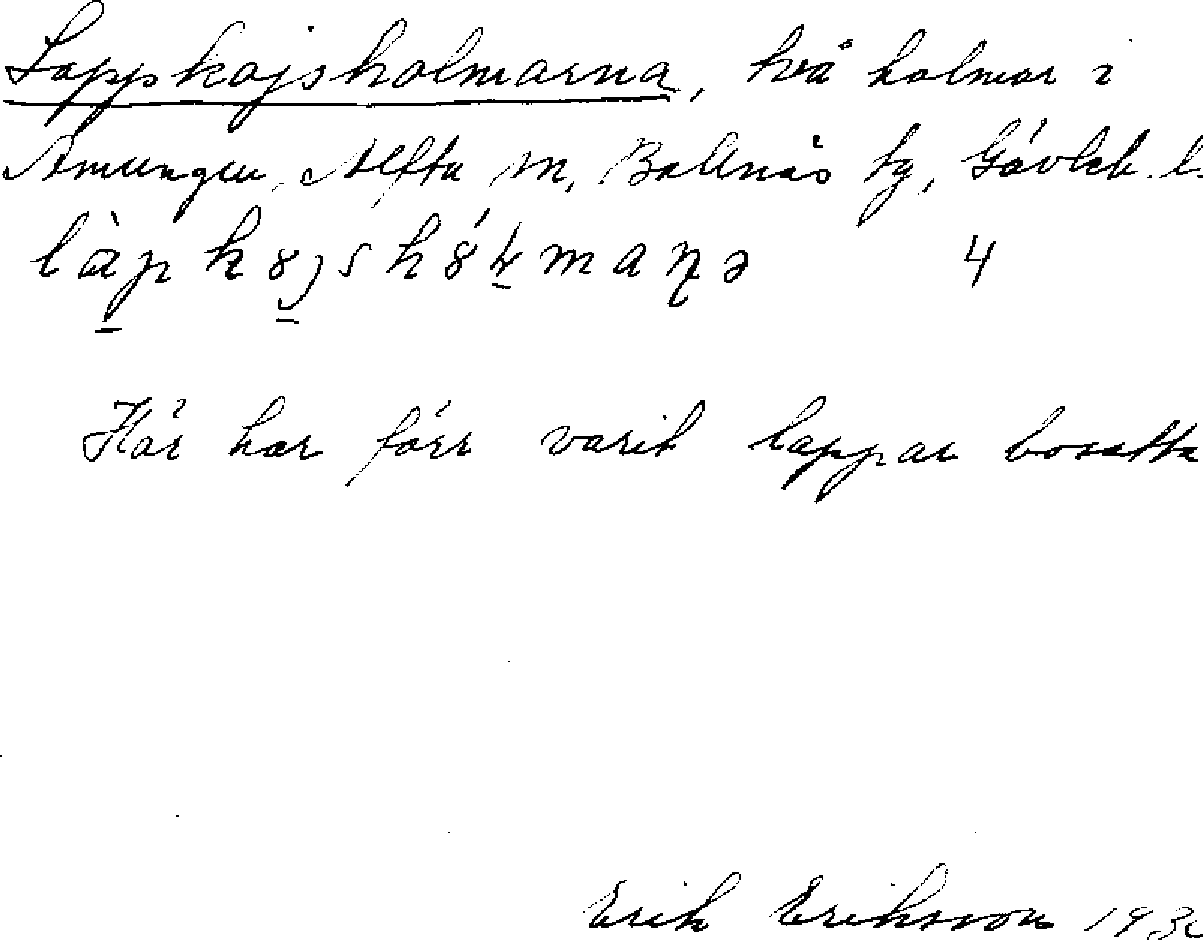 Lappkojsholmarna, två holmar i
Amungen, Alfta sn, Bollnäs tg, Gävleb. l.
làp kȣjs hȣ́ɬmaɳə 4
Här har förr varit lappar bosatta
Erik Eriksson 193